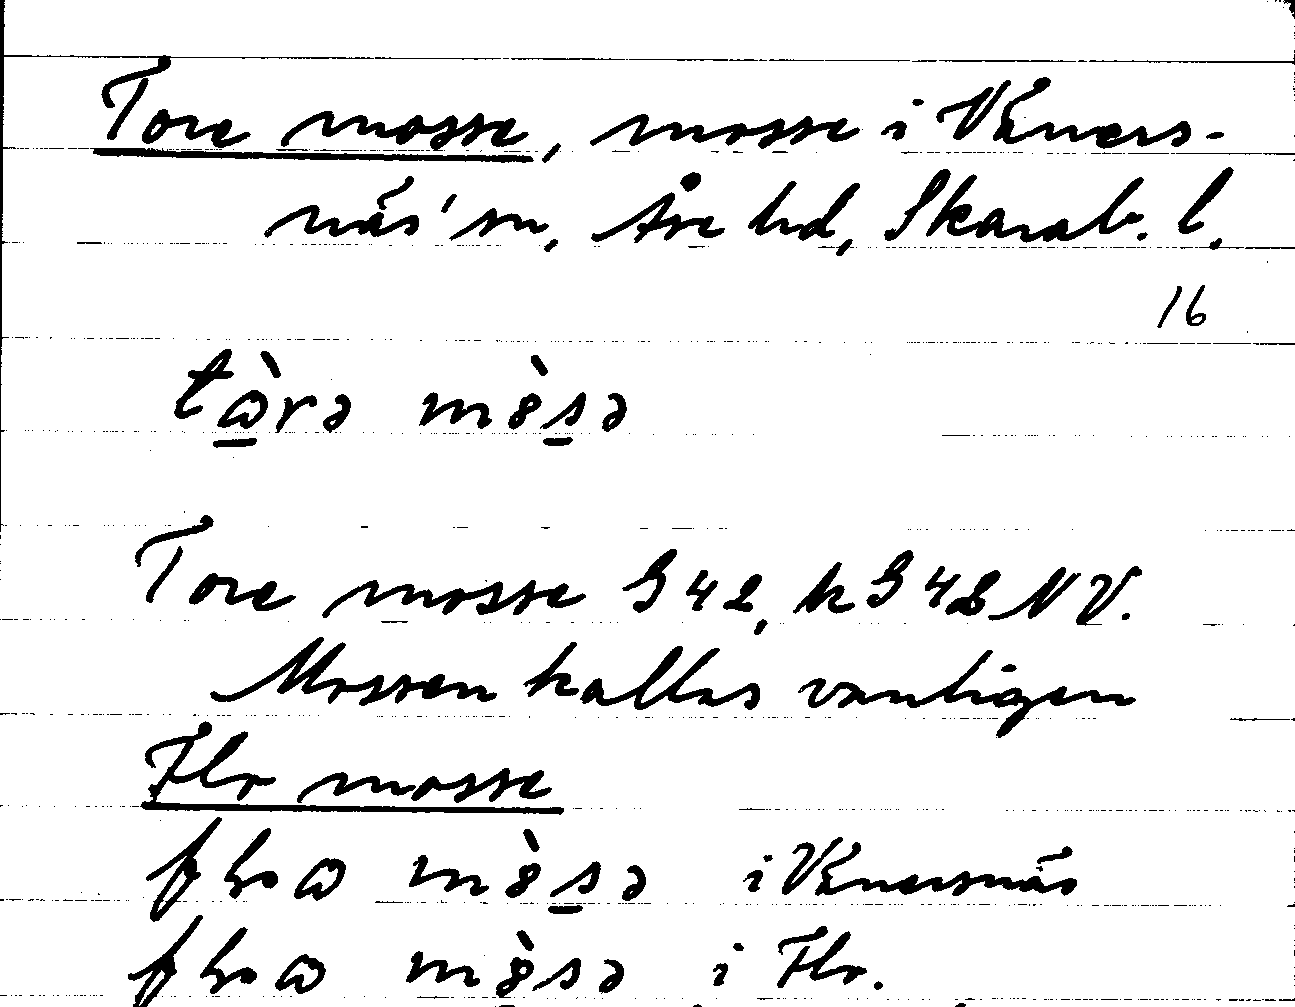 Tore mosse, mosse i Väners-
näs' sn, Åse hd, Skarab. l.
16
tɷ̀rə mȣ̀sə
Tore mosse G 42, k G 42 NV.
Mossen kallas vanligen
Flo mosse
mȣ̀sə i Vänersnäs
mȣ̀sə i Flo.